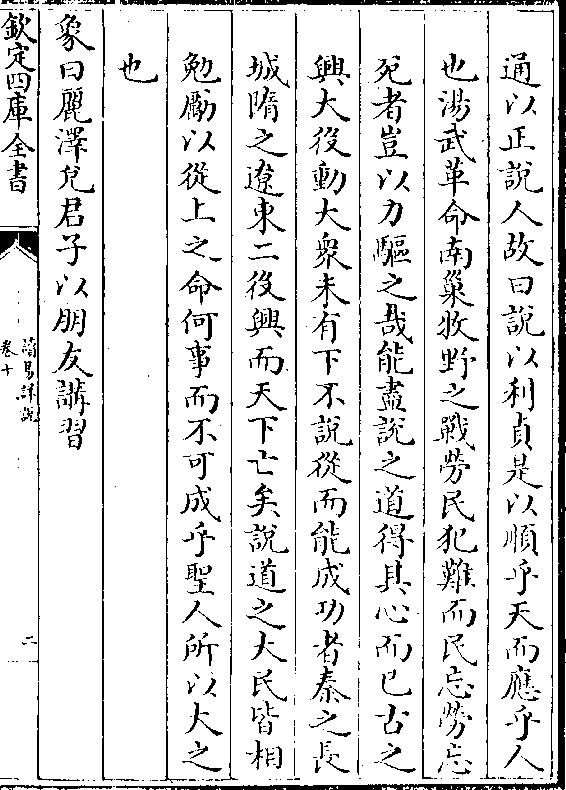 通以正說人故曰說以利貞是以順乎天而應乎人
也湯武革命南巢牧野之戰勞民犯難而民忘勞忘
死者豈以力驅之哉能盡說之道得其心而已古之
興大役動大衆未有下不說從而能成功者秦之長
城隋之遼東二役興而天下亡矣說道之大民皆相
勉勵以從上之命何事而不可成乎聖人所以大之
也
象曰麗澤兌君子以朋友講習
欽定四庫全書
讀易詳說
卷十
二